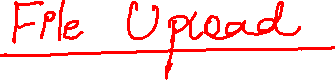 File Upload